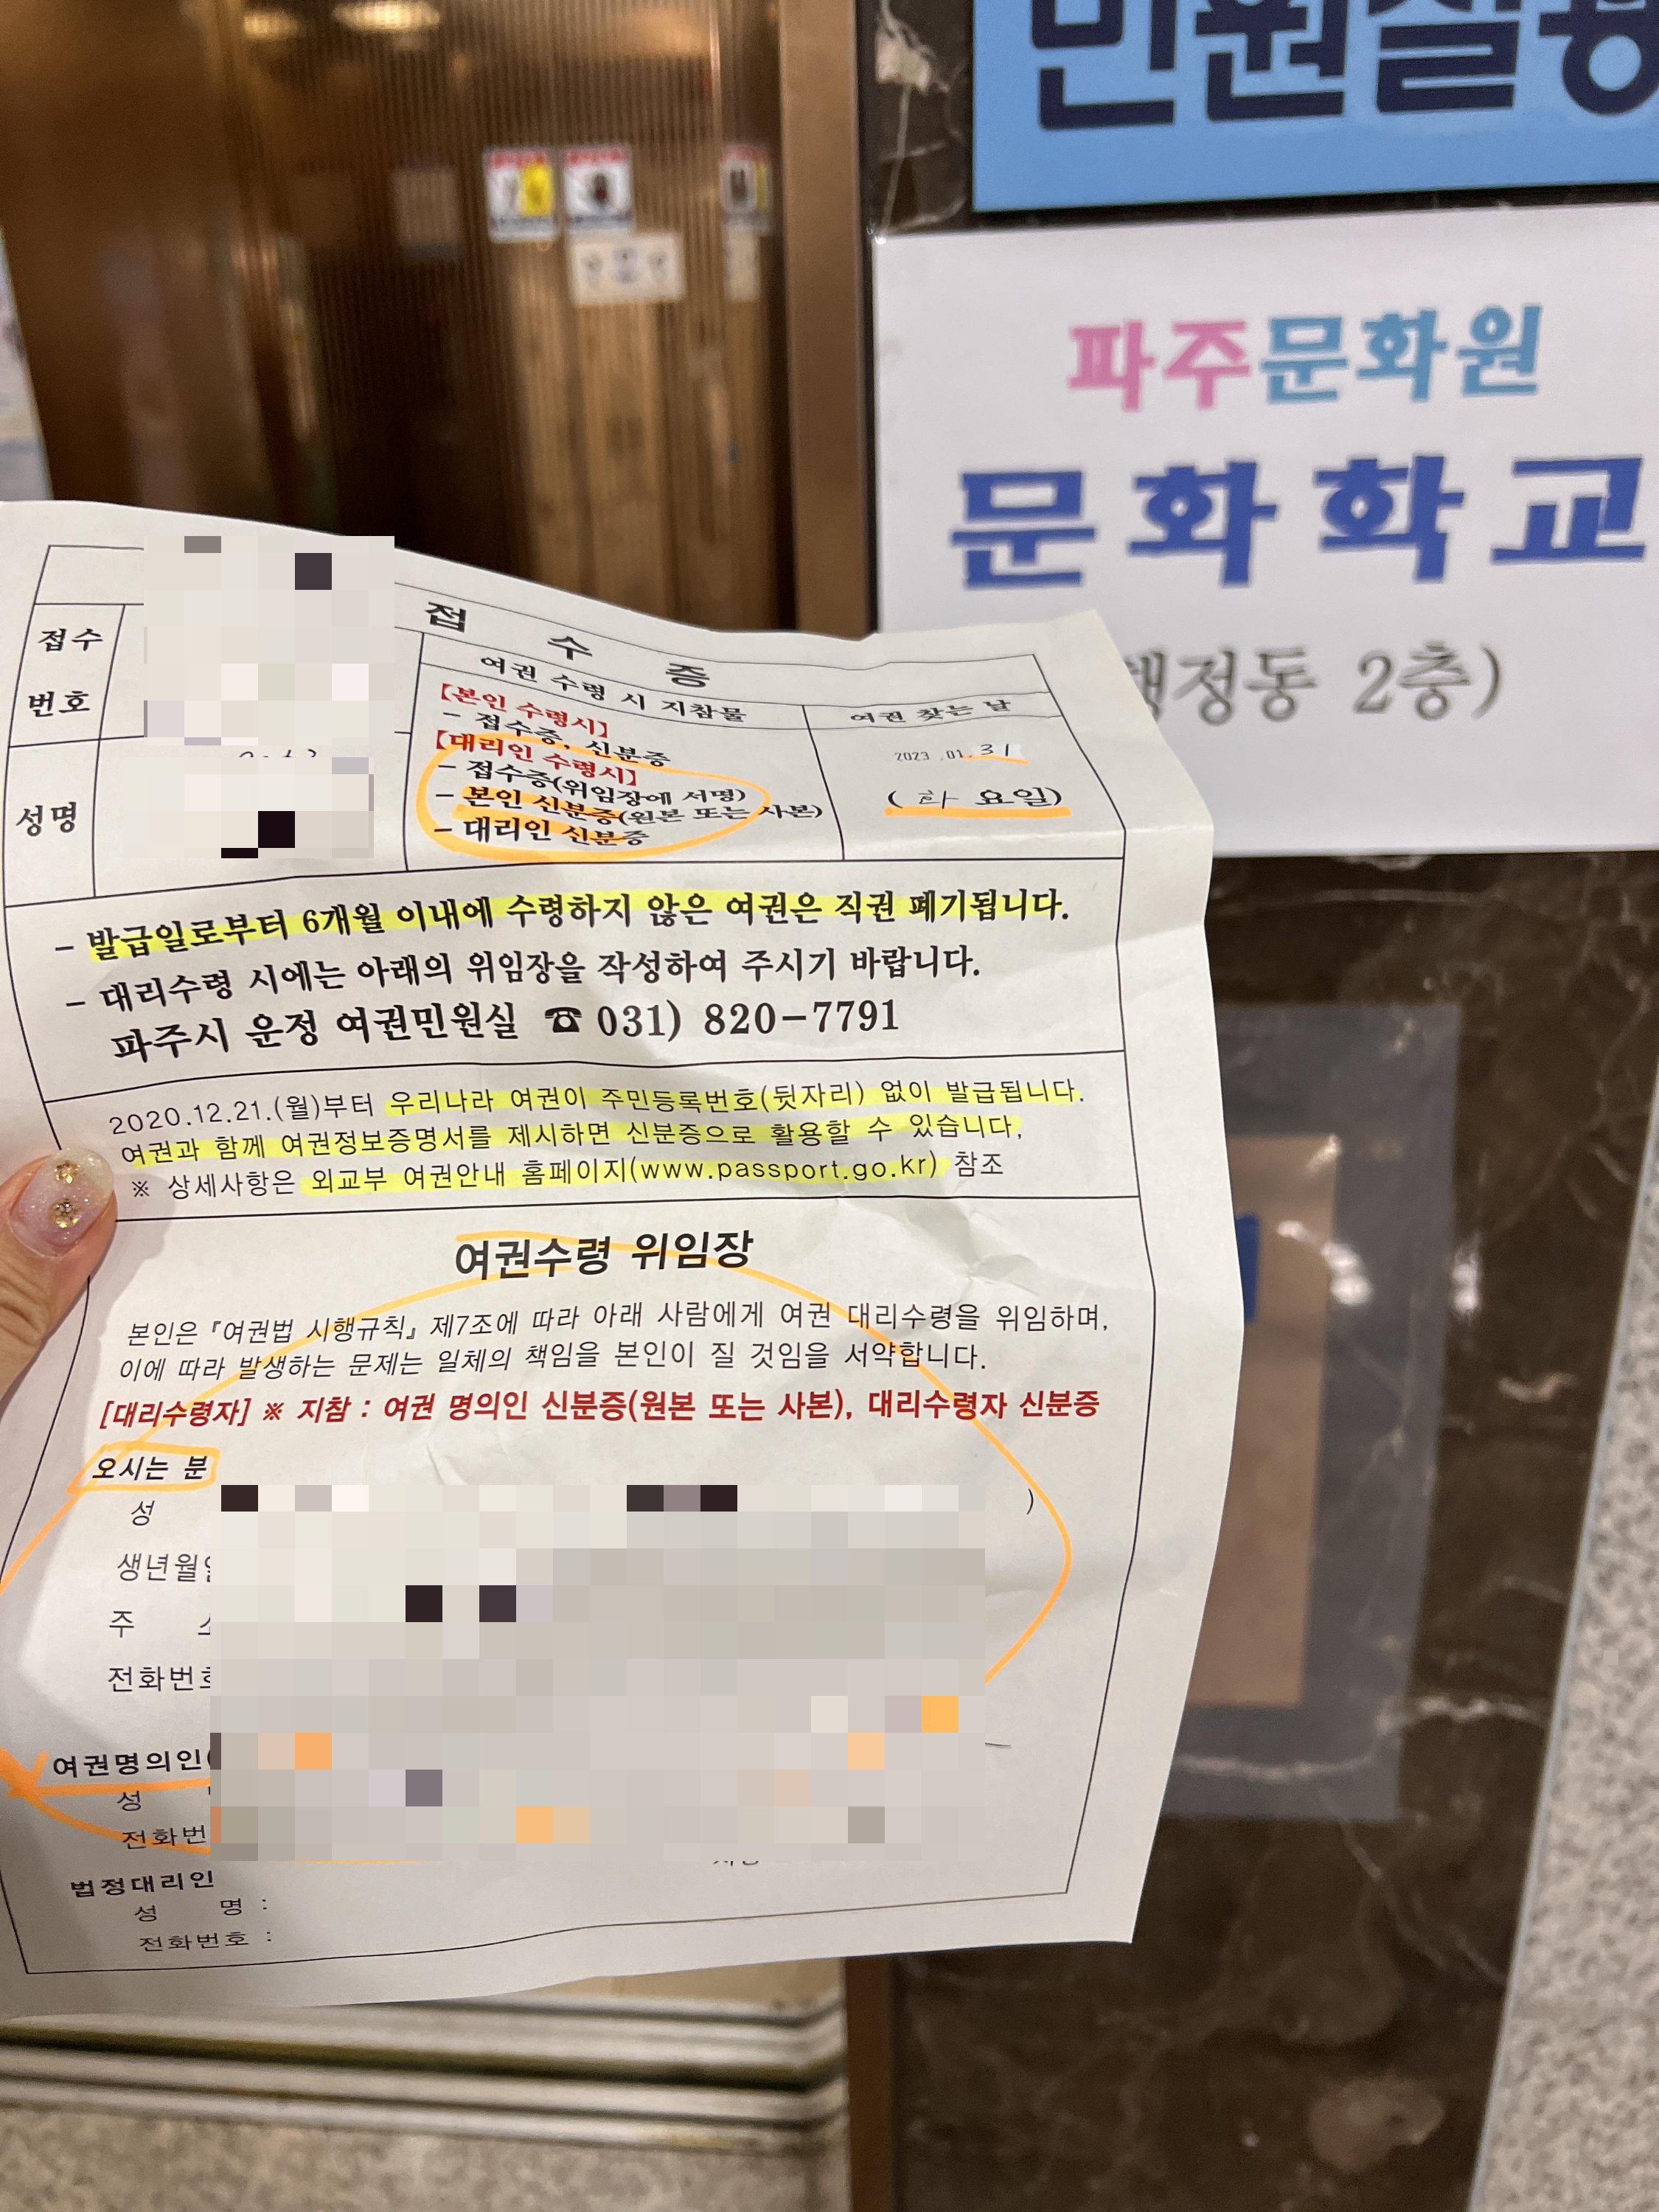 민원실
파주문화원
문화학교
행정동 2층)
접수증
접수
번호
성명
여권 수령 시 지참물
【본인 수령시】
- 접수증, 신분증
【대리인 수령시】
- 접수증(위임장에 서명)
- 본인 신분증(원본 또는 사본)
- 대리인 신분증
여권 찾는 날
2023 .01. 31
( 화 요일)
- 발급일로부터 6개월 이내에 수령하지 않은 여권은 직권 폐기됩니다.
- 대리수령 시에는 아래의 위임장을 작성하여 주시기 바랍니다.
파주시 운정 여권민원실 ☎ 031) 820-7791
2020.12.21.(월)부터 우리나라 여권이 주민등록번호(뒷자리) 없이 발급됩니다.
여권과 함께 여권정보증명서를 제시하면 신분증으로 활용할 수 있습니다,
※ 상세사항은 외교부 여권안내 홈페이지(www.passport.go.kr) 참조
여권수령 위임장
본인은 『여권법 시행규칙』 제7조에 따라 아래 사람에게 여권 대리수령을 위임하며,
이에 따라 발생하는 문제는 일체의 책임을 본인이 질 것임을 서약합니다.
[대리수령자] ※ 지참 : 여권 명의인 신분증(원본 또는 사본), 대리수령자 신분증
오시는 분
성 )
생년월일
주 소
전화번호
여권명의인(
성
전화번
법정대리인
성 명 :
전화번호 :